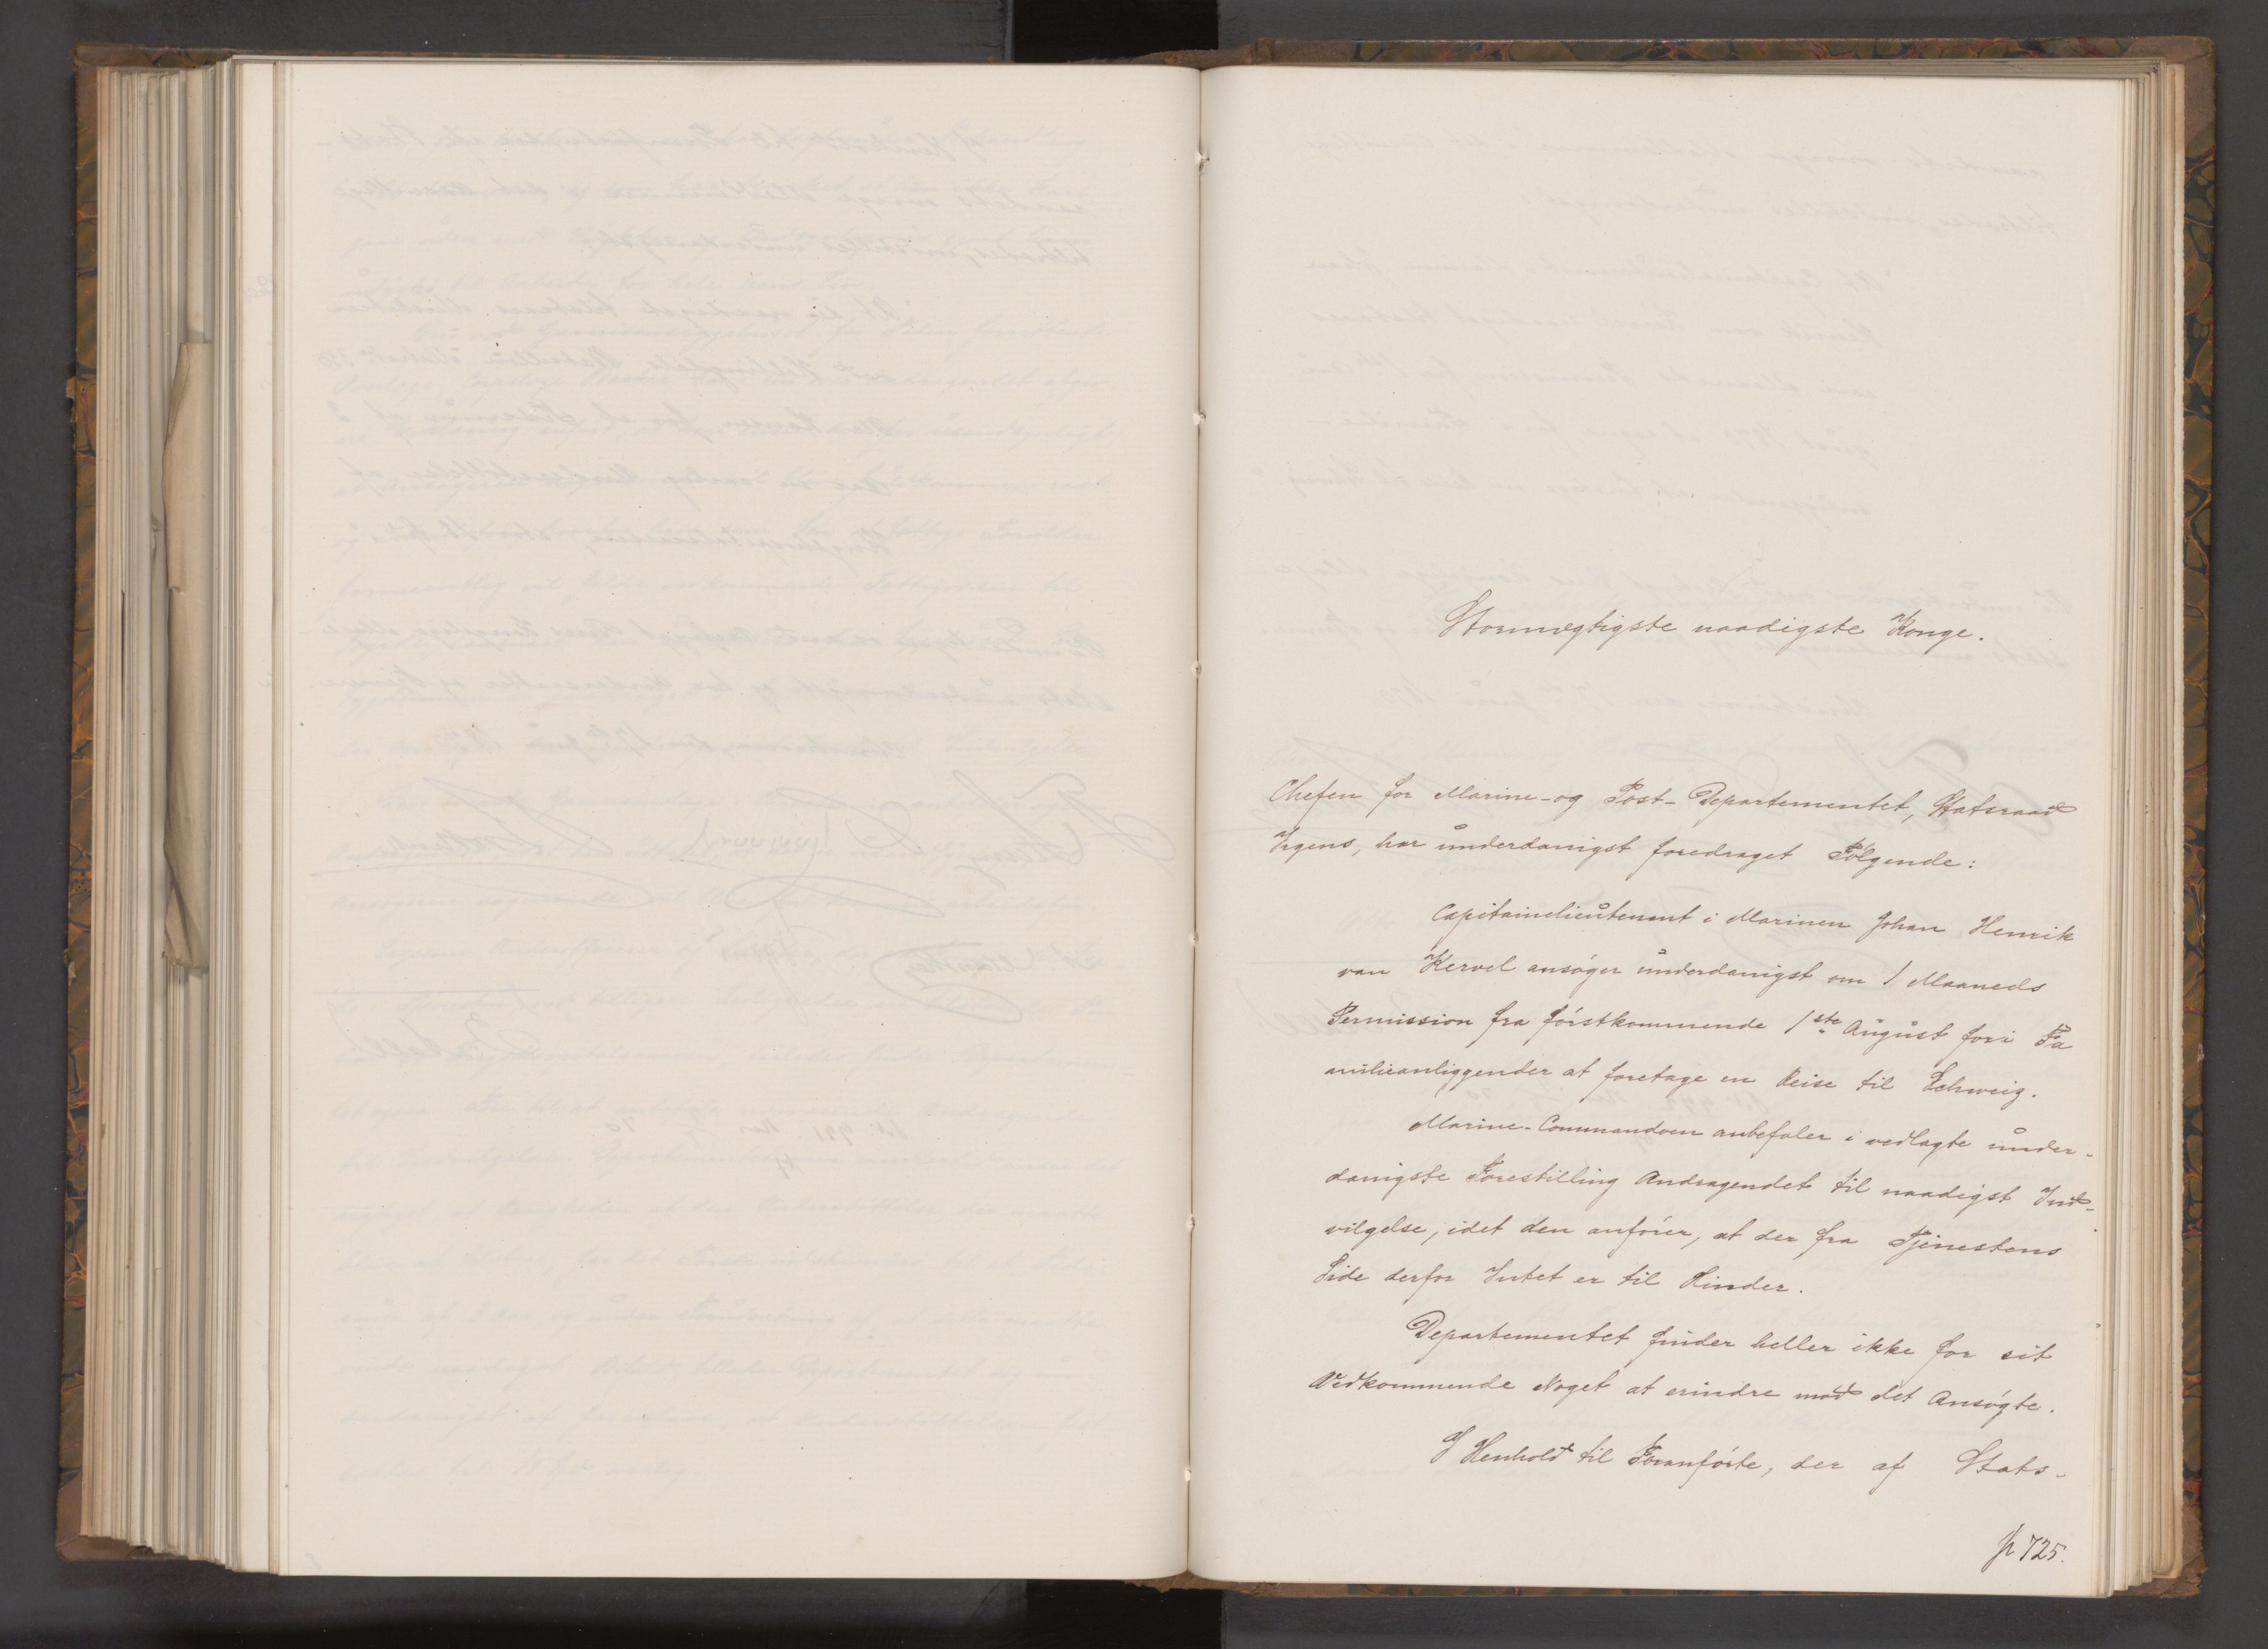 Stormægtigste naadigste Konge.
Chefen for Marine- og Post-Departementet, Statsraad
Irgens, har underdanigst foredraget Følgende:
Capitainelieutenant i Marinen Johan Henrik
van Kervel ansøger underdanigst om 1 Maaneds
Permission fra førstkommende 1ste August for i Fa
milieanliggender at foretage en Reise til Schweiz.
Marine-Commandoen anbefaler i vedlagte under-
danigste Forestilling Andragendet til naadigst Ind-
vilgelse, idet den anfører, at der fra Tjenestens
Side derfor Intet er til Hinder.
Departementet finder heller ikke for sit
Vedkommende Noget at erindre mod det Ansøgte.
I Henhold til Foranførte, der af Stats-
725.